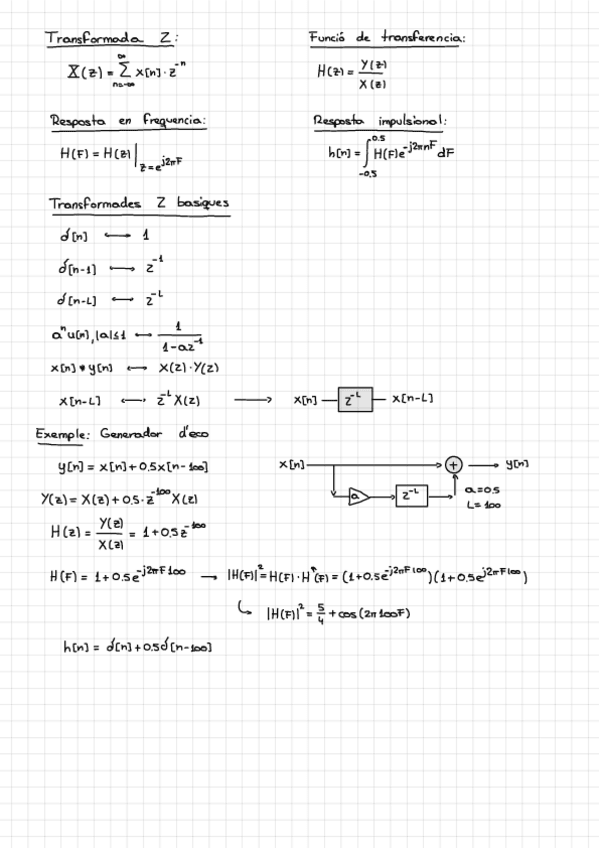 Transformada Z:
X(z) = ∑_{n=-∞}^{∞} x[n]·z^{-n}
Funció de transferencia:
H(z) = Y(z)/X(z)
Resposta en frequencia:
H(F) = H(z)|_{z=e^{j2πF}}
Resposta impulsional:
h[n] = ∫_{-0.5}^{0.5} H(F)e^{-j2πnF} dF
Transformades Z basiques
δ[n] ⟷ 1
δ[n-1] ⟷ z^{-1}
δ[n-L] ⟷ z^{-L}
a^n u[n], |a|≤1 ⟷ 1/(1-az^{-1})
x[n] * y[n] ⟷ X(z)·Y(z)
x[n-L] ⟷ z^{-L} X(z) ⟶ x[n] z^{-L} x[n-L]
Exemple: Generador d'eco
y[n] = x[n] + 0,5x[n-100]
Y(z) = X(z) + 0,5·z^{-100} X(z)
H(z) = Y(z)/X(z) = 1+0,5z^{-100}
x[n] + y[n]
a z^{-L}
a=0.5
L=100
H(F) = 1+0.5e^{-j2πF100} ⟶ |H(F)|^2 = H(F)·H^*(F) = (1+0.5e^{-j2πF100})(1+0.5e^{j2πF100})
|H(F)|^2 = 5/4 + cos(2π100F)
h[n] = δ[n] + 0,5δ[n-100]